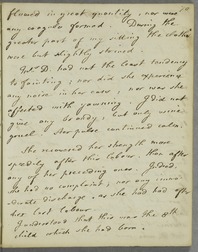 flowed in great quantity, nor were
any coagula formed. During the
greater part of my sitting the clothes
were but slightly stained.
Mrs. D. had not the least tendency
to fainting; nor did she experience
any noise in her ears; nor was she
affected with yawning. I did not
give any brandy; but only wine
gruel. Her pulse continued calm.
She recovered her strength more
speedily after this labour, than after
any of her preceding ones. Indeed,
she had no complaint; nor any
discharge as she had had after
her last labour.
I understood that this was the 8th
child which she had born.